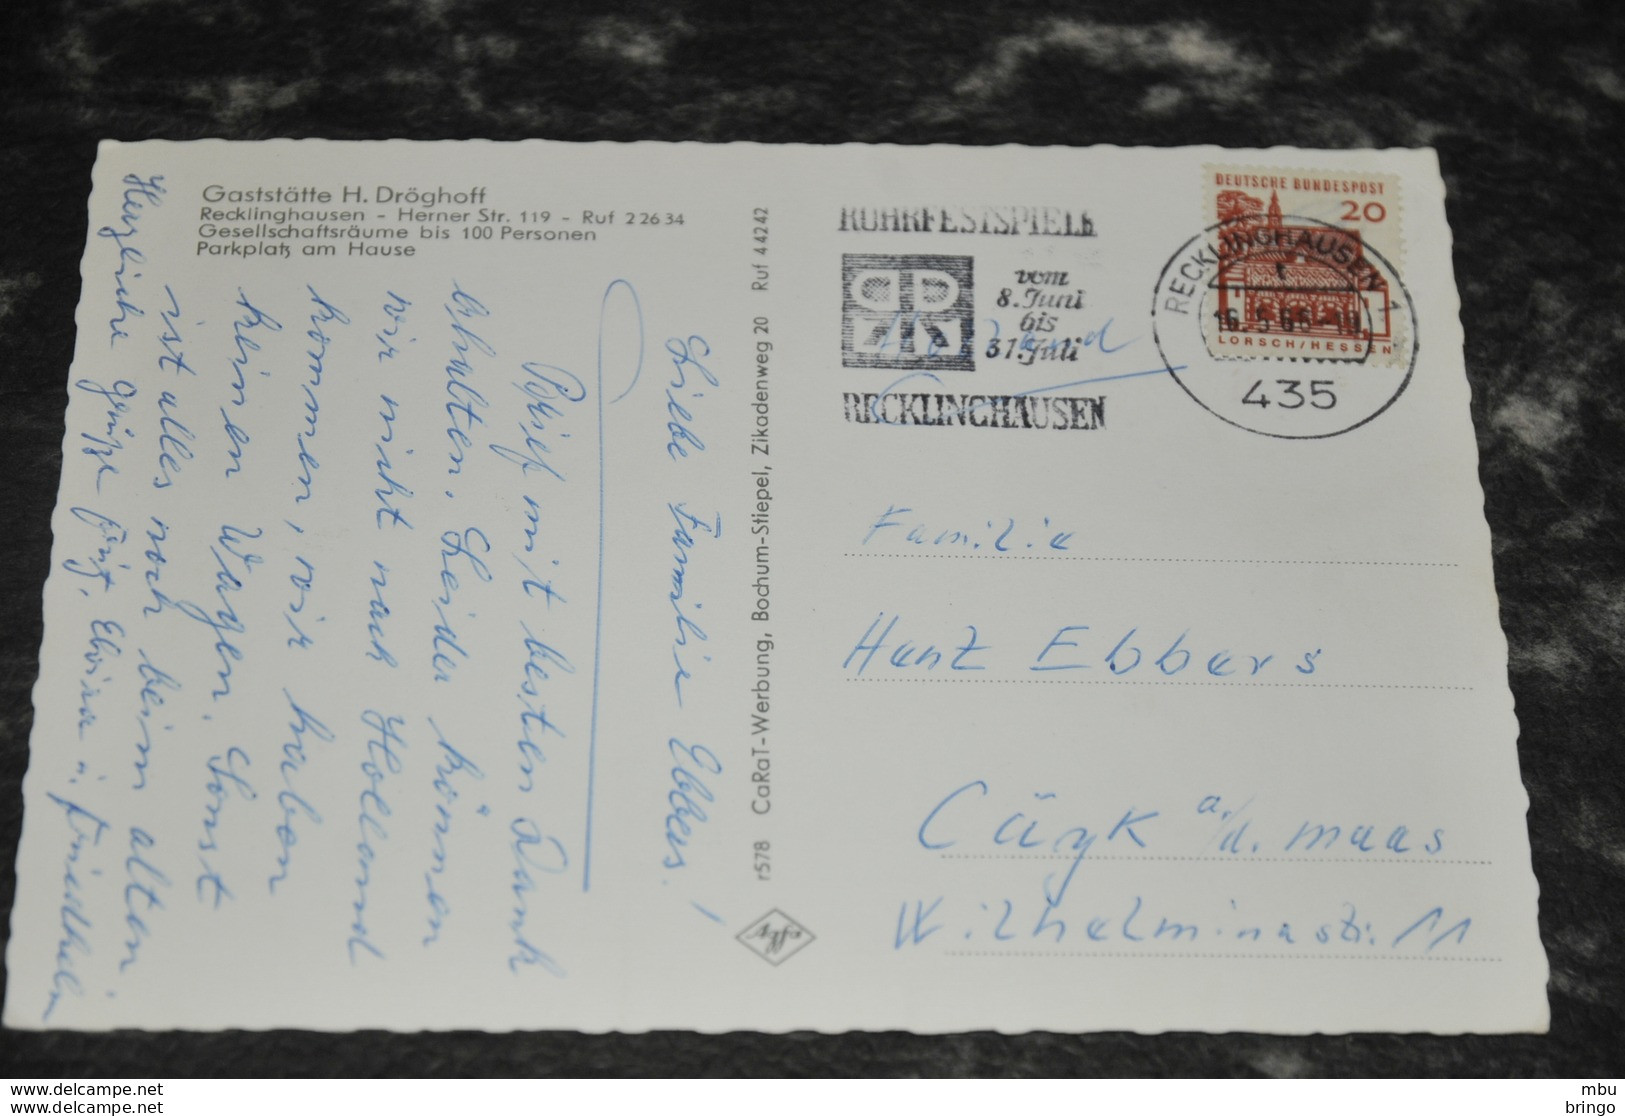 Gaststätte H. Dröghoff
Recklinghausen - Herner Str. 119 - Ruf 2 26 34
Gesellschaftsräume bis 100 Personen
Parkplatz am Hause
Liebe Familie Ebbers!
Brief mit besten Dank
erhalten. Leider können
wir nicht nach Holland
kommen, wir haben
keinen Wagen. Sonst
ist alles noch beim alten
Herzliche Grüße Fritz, u. Friedhelm
r578 CaRaT-Werbung, Bochum-Stiepel, Zikadenweg 20 Ruf 4 42 42
Agfa
RUHRFESTSPIELE
vom
8. Juni
bis
31. Juli
RECKLINGHAUSEN
Holland
DEUTSCHE BUNDESPOST
20
LORSCH/HESSEN
RECKLINGHAUSEN 1
t
16.5.66-19
435
Familie
Hanz Ebbers
Cüyk a/d. maas
Wilhelminastr. 11
www.delcampe.net
www.delcampe.net
mbu
bringo